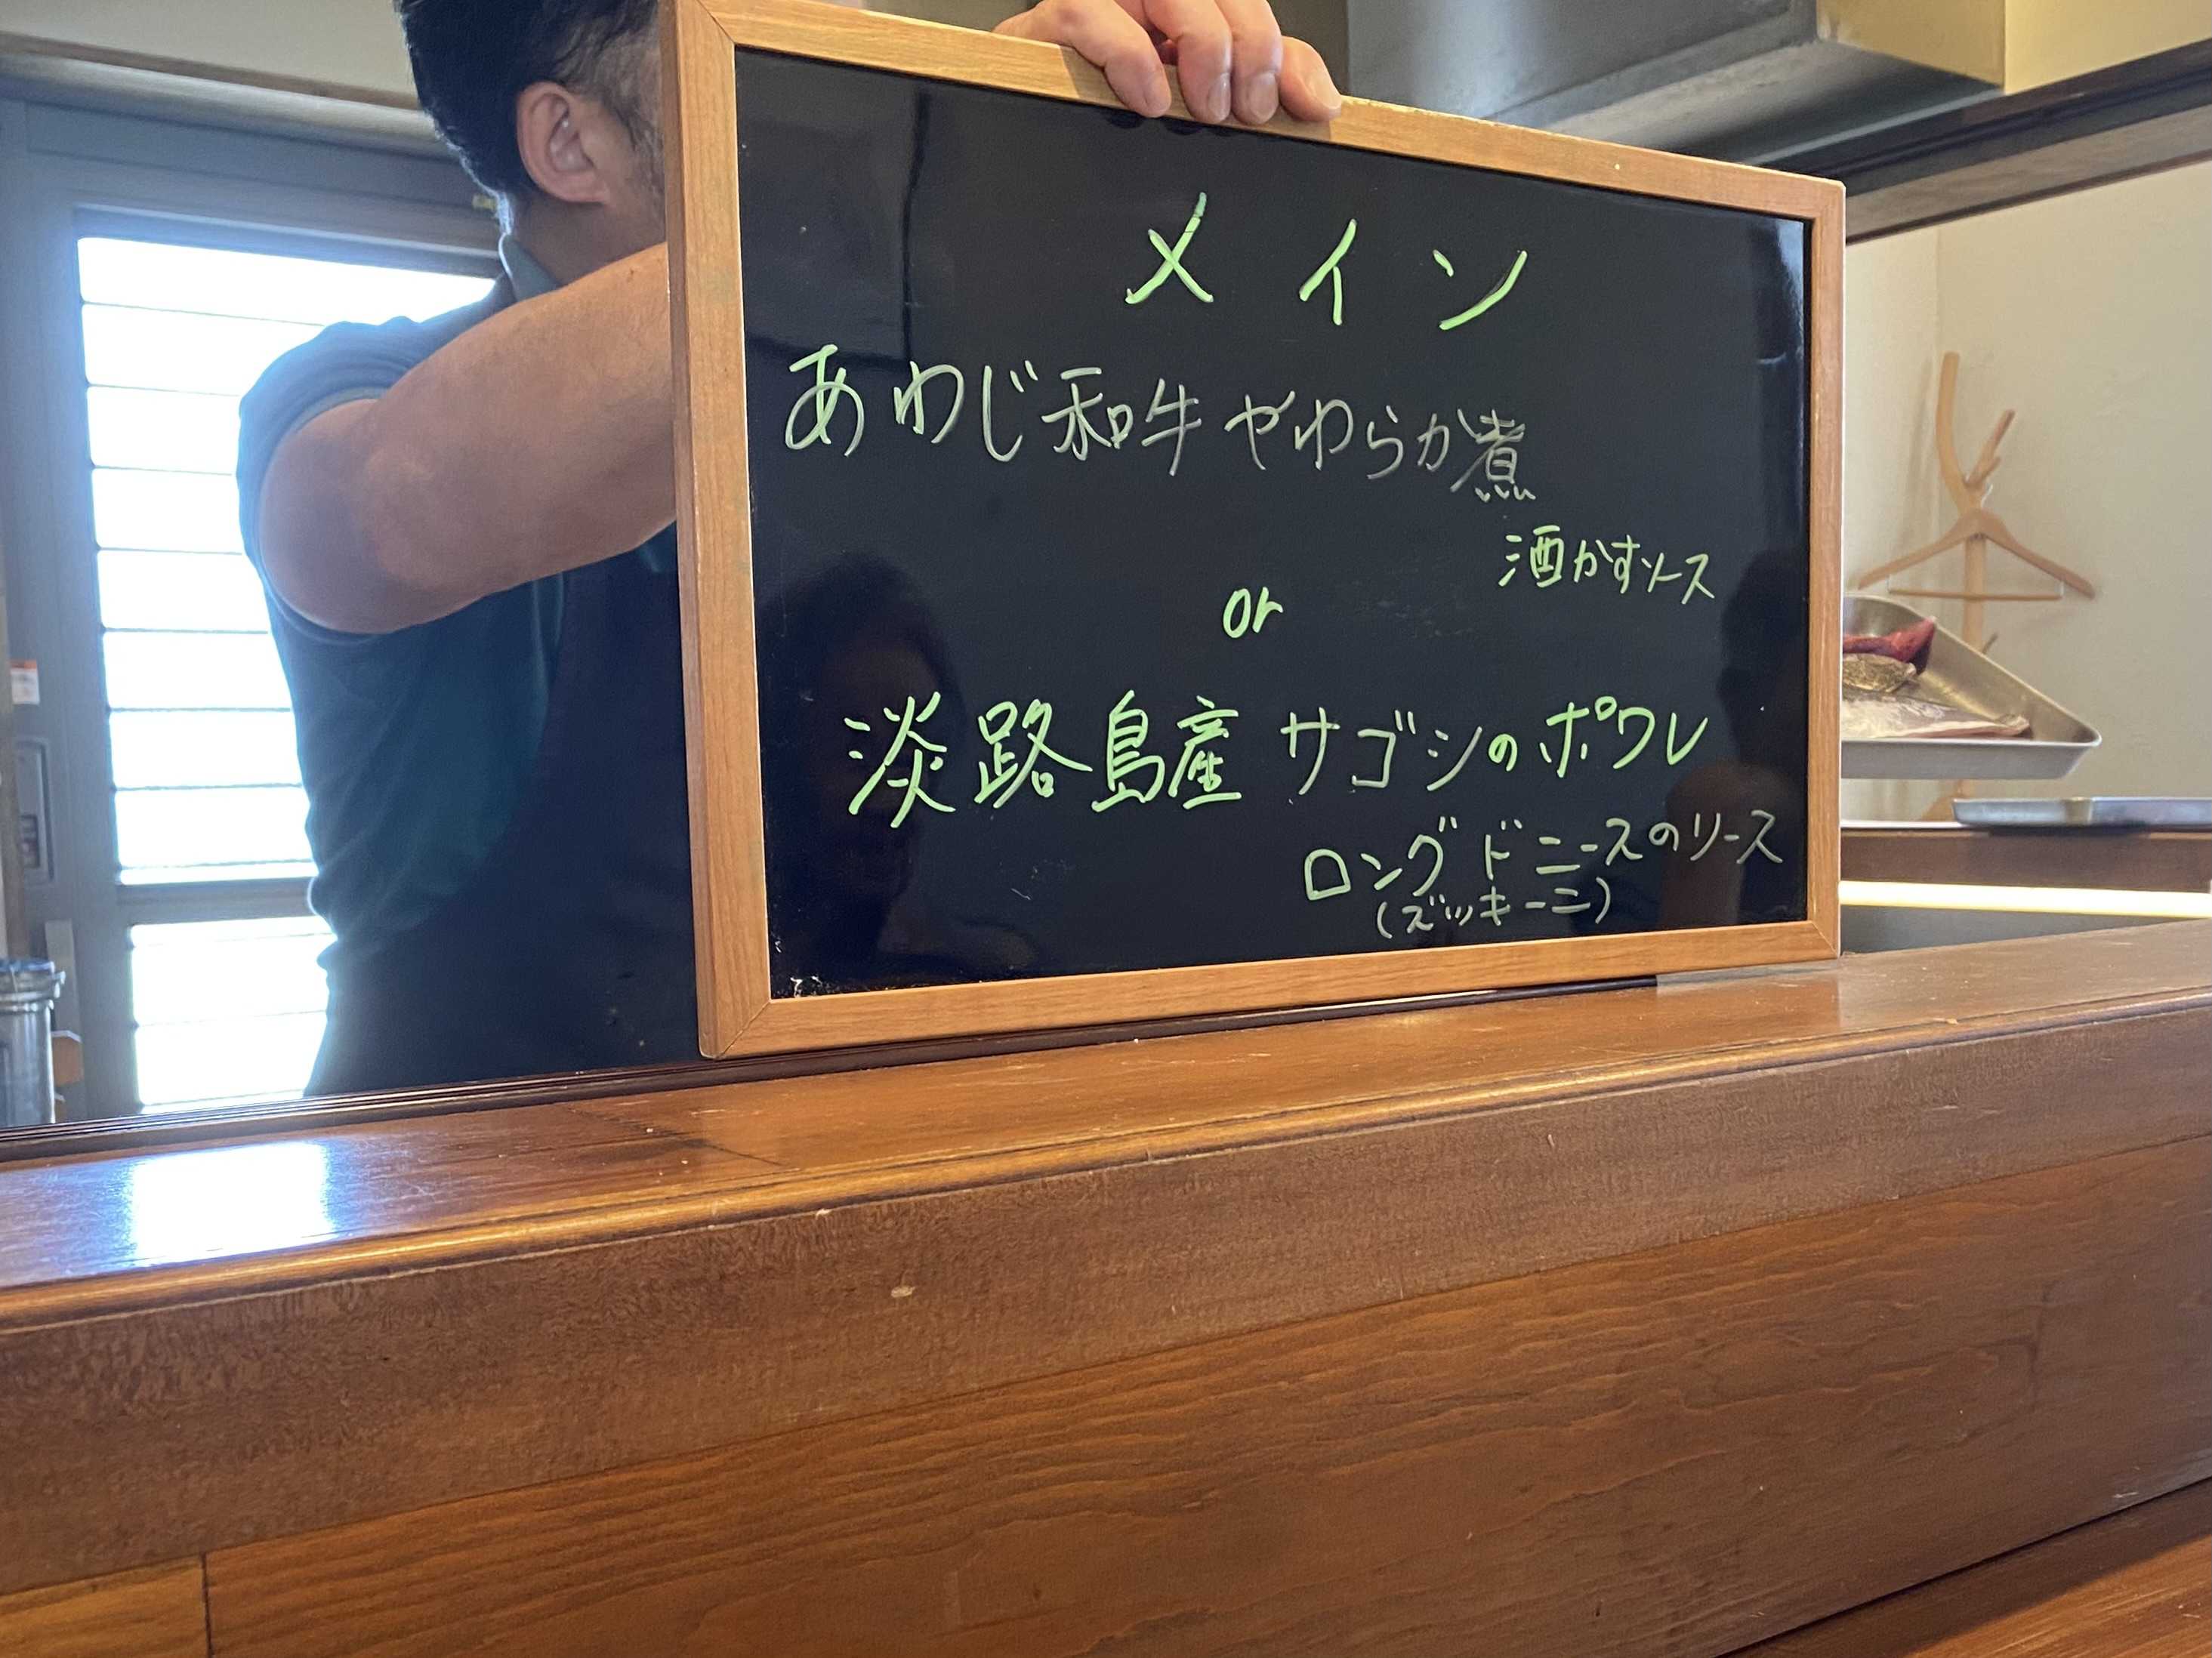 メイン
あわじ和牛やわらか煮
酒かすソース
or
淡路島産サゴシのポワレ
ロングドニースのソース
(ズッキーニ)